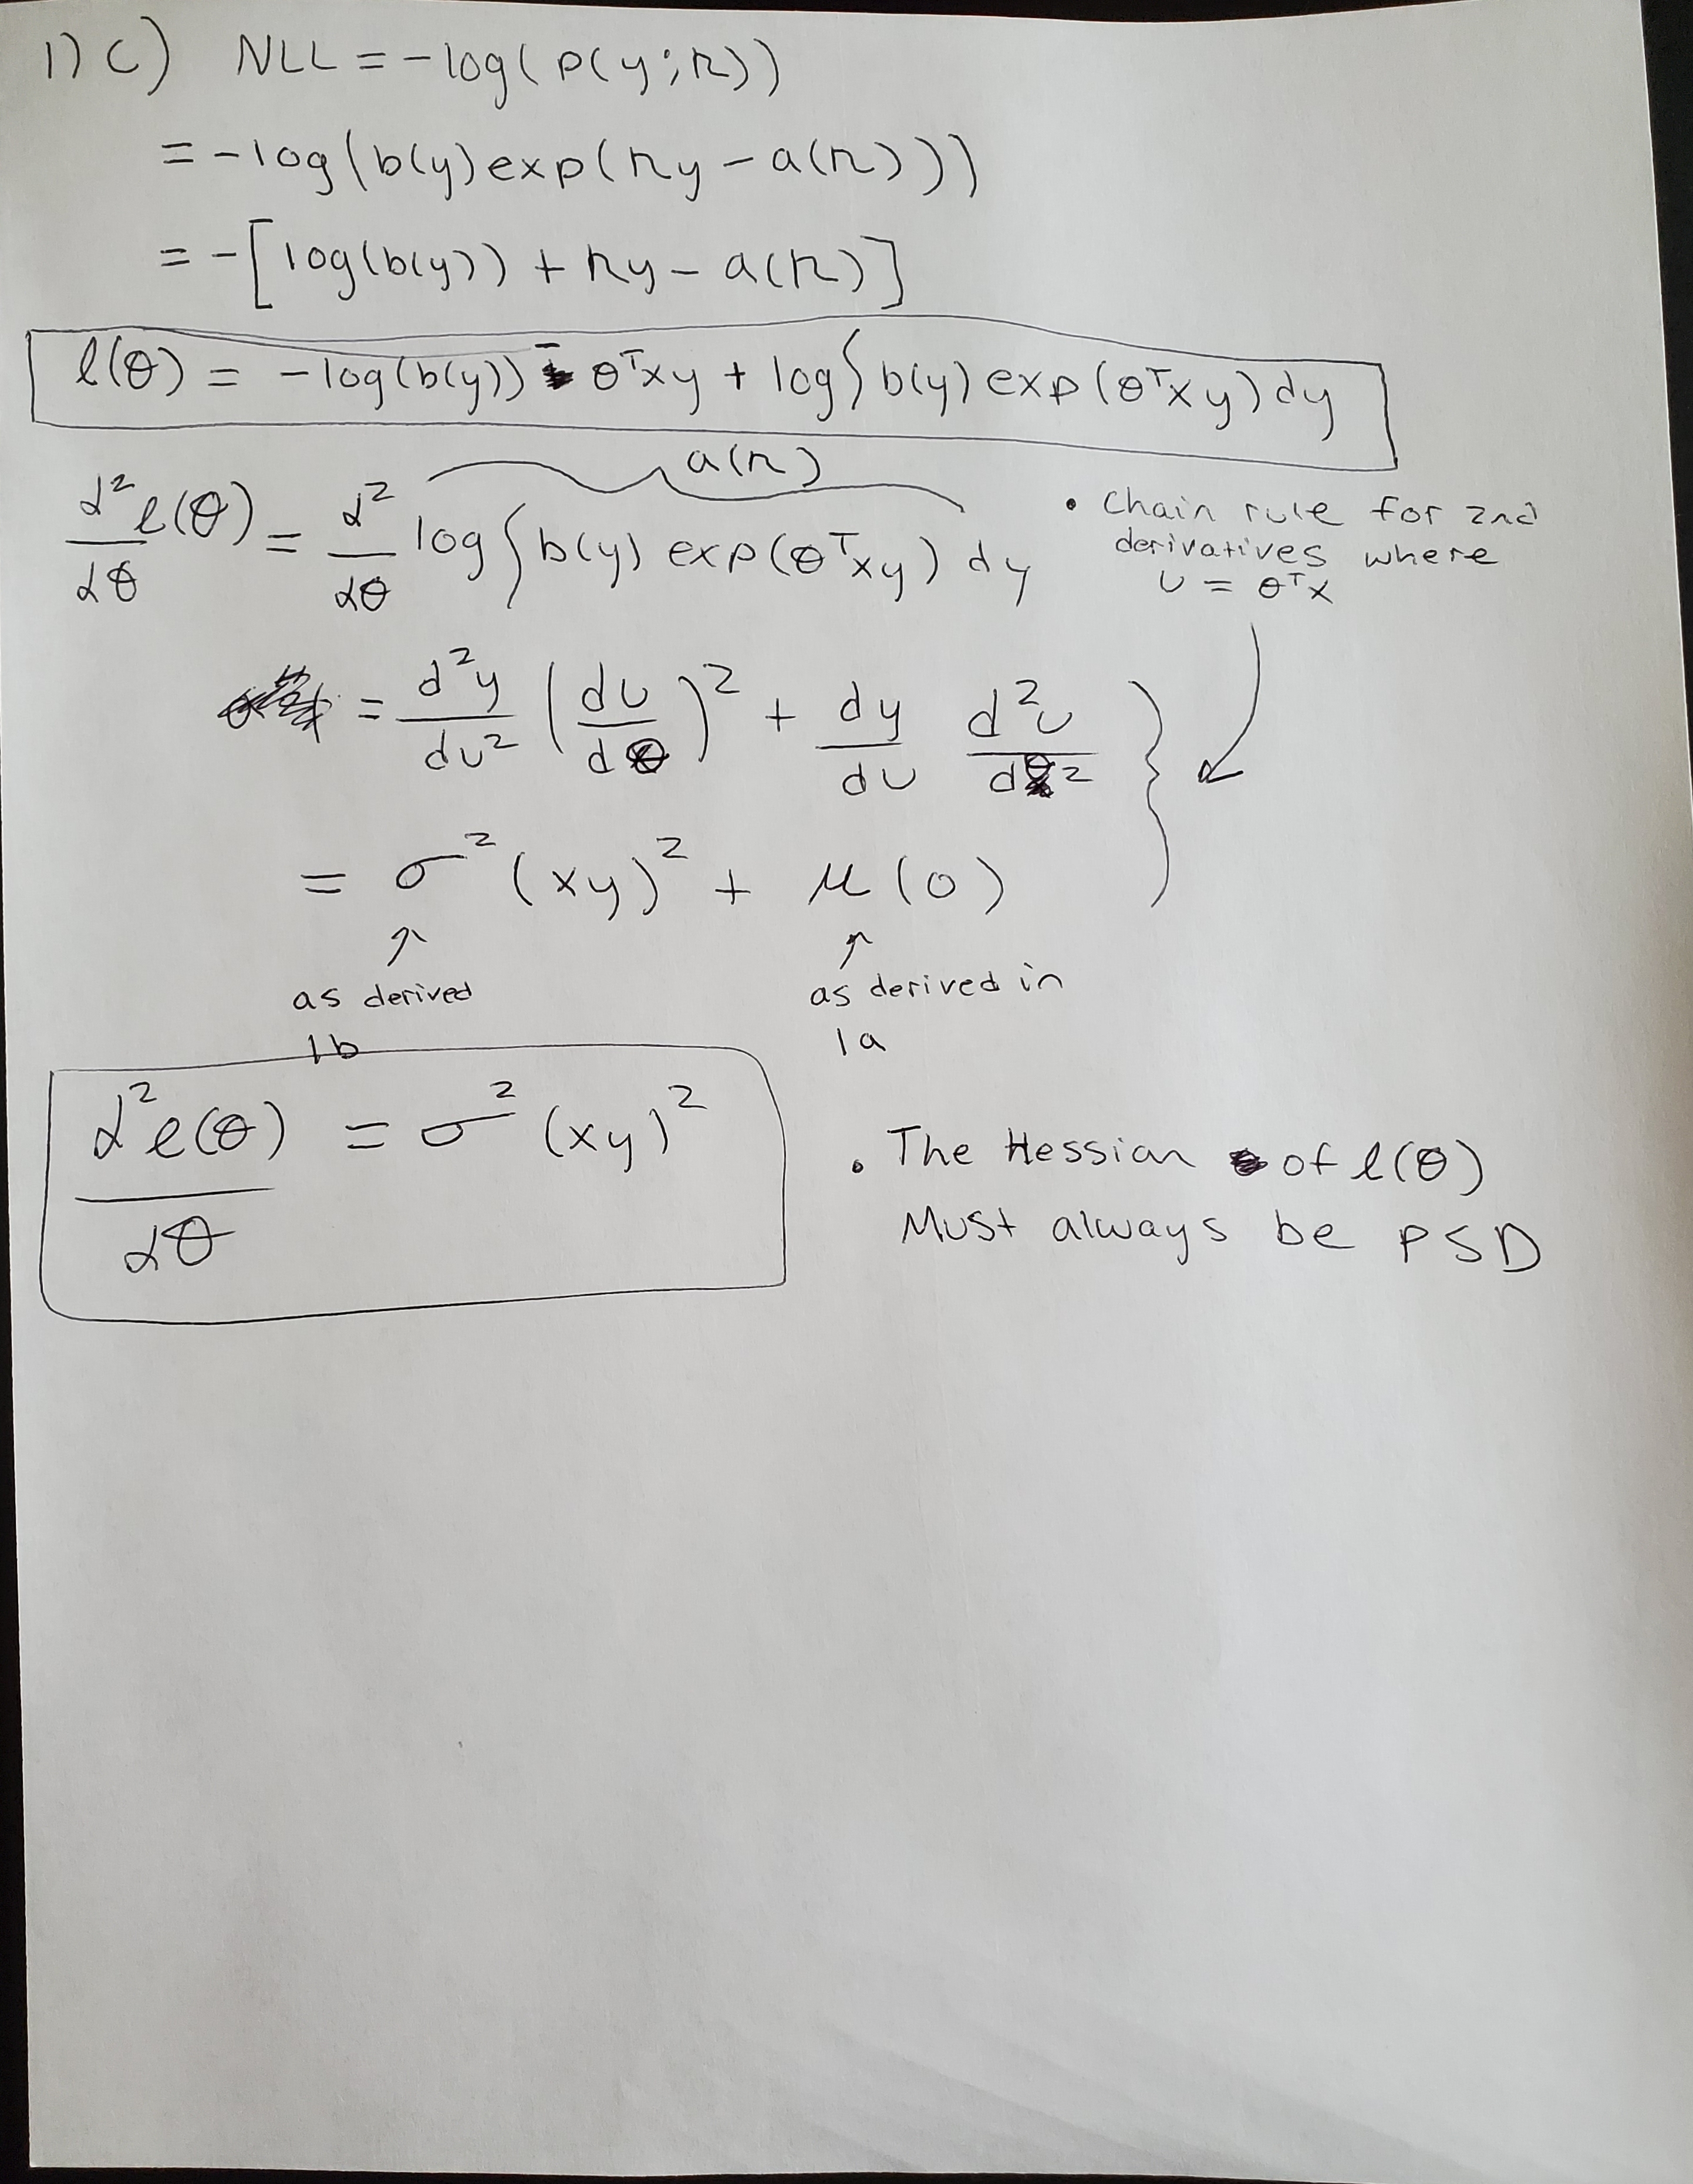 1) C) NLL = -log(p(y;n))
= -log(b(y)exp(ny - a(n)))
= -[log(b(y)) + ny - a(n)]
l(θ) = -log(b(y)) - θᵀxy + log∫b(y)exp(θᵀxy)dy
a(n)
d²l(θ)/dθ = d²/dθ log∫b(y) exp(θᵀxy) dy
• Chain rule for 2nd
derivatives where
u = θᵀx
= d²y/du² (du/dθ)² + dy/du d²u/dθ²
= σ²(xy)² + μ(0)
↑ ↑
as derived as derived in
1b 1a
d²l(θ)/dθ = σ²(xy)²
• The Hessian of l(θ)
Must always be PSD